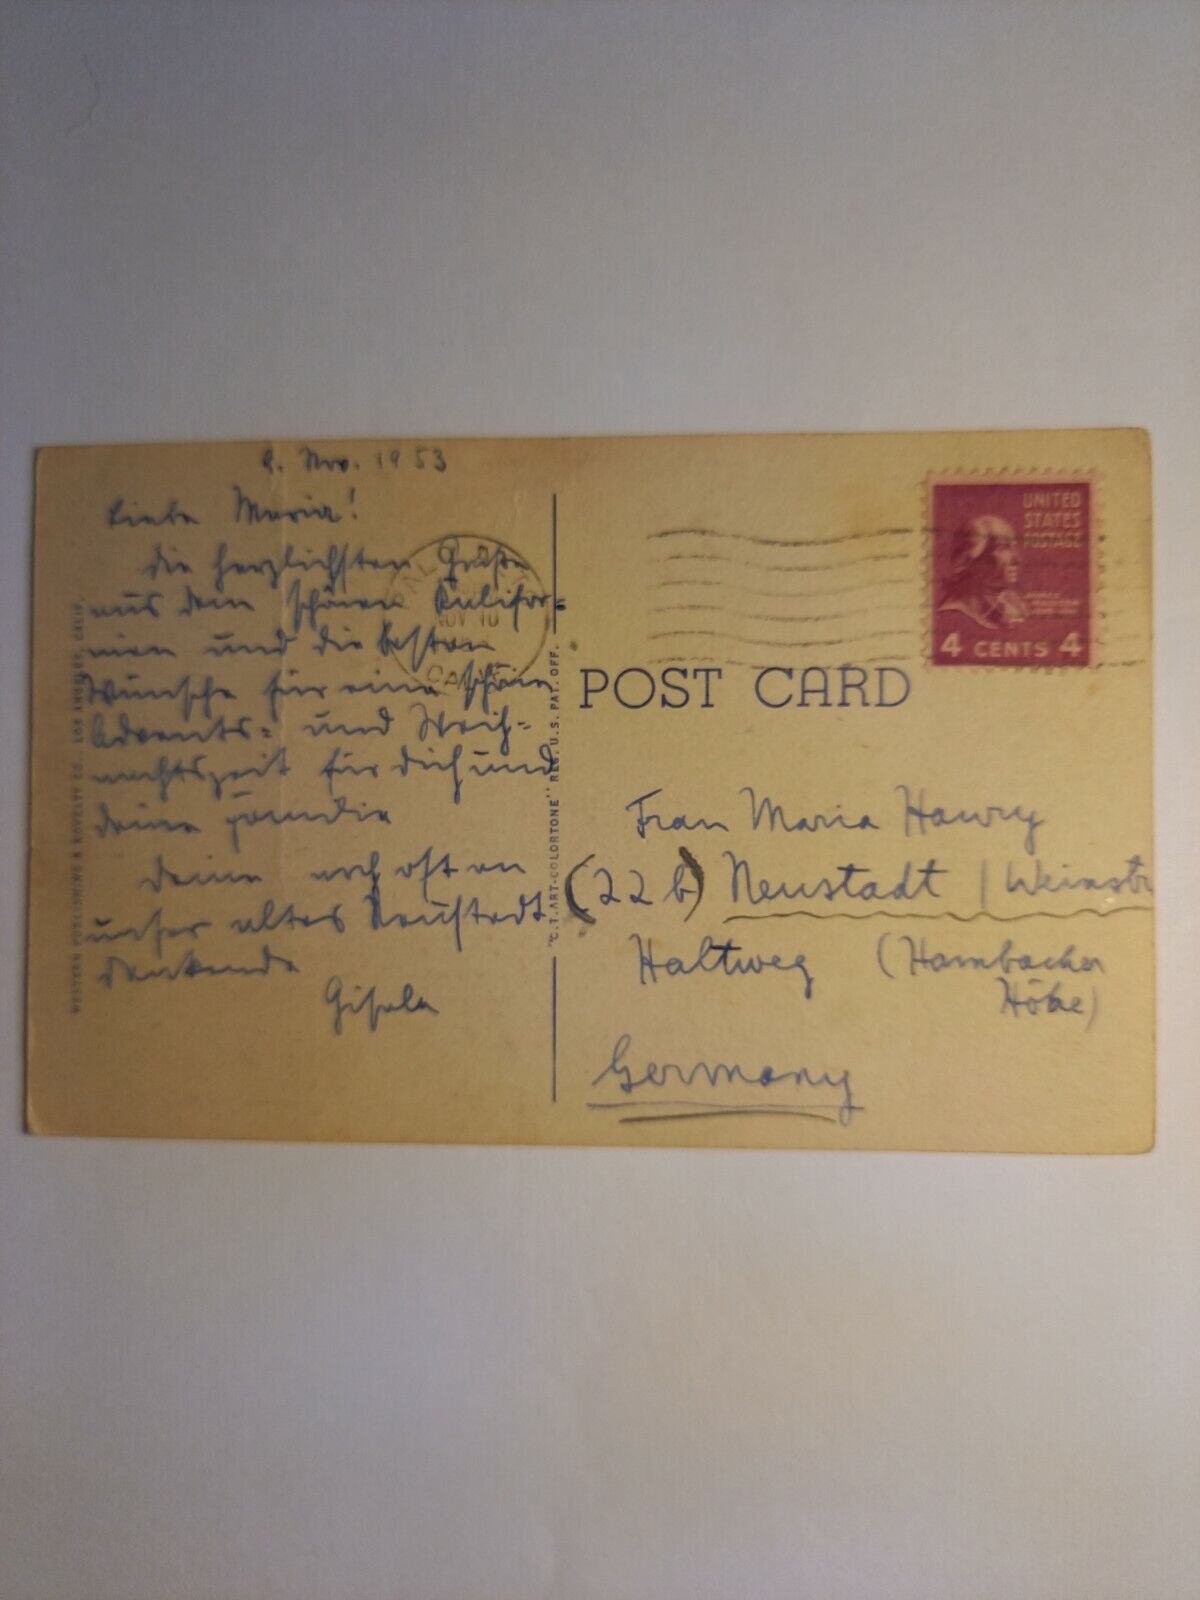 9. Nov. 1953
Liebe Maria!
die herzlichsten Grüße
aus dem schönen Kalifor=
nien und die besten
Wünsche für eine schöne
Advents= und Weih=
nachtszeit für dich und
deine Familie
deine noch oft an
unser altes Neustadt
denkende
Gisela
WESTERN PUBLISHING & NOVELTY CO., LOS ANGELES, CALIF.
"C.T. ART-COLORTONE" REG. U.S. PAT. OFF.
NOV 10
CALIF
POST CARD
UNITED
STATES
POSTAGE
JAMES
MADISON
4 CENTS 4
Frau Maria
(22b) Neustadt / Weinstr
Haltweg (Hambacher
Höhe)
Germany